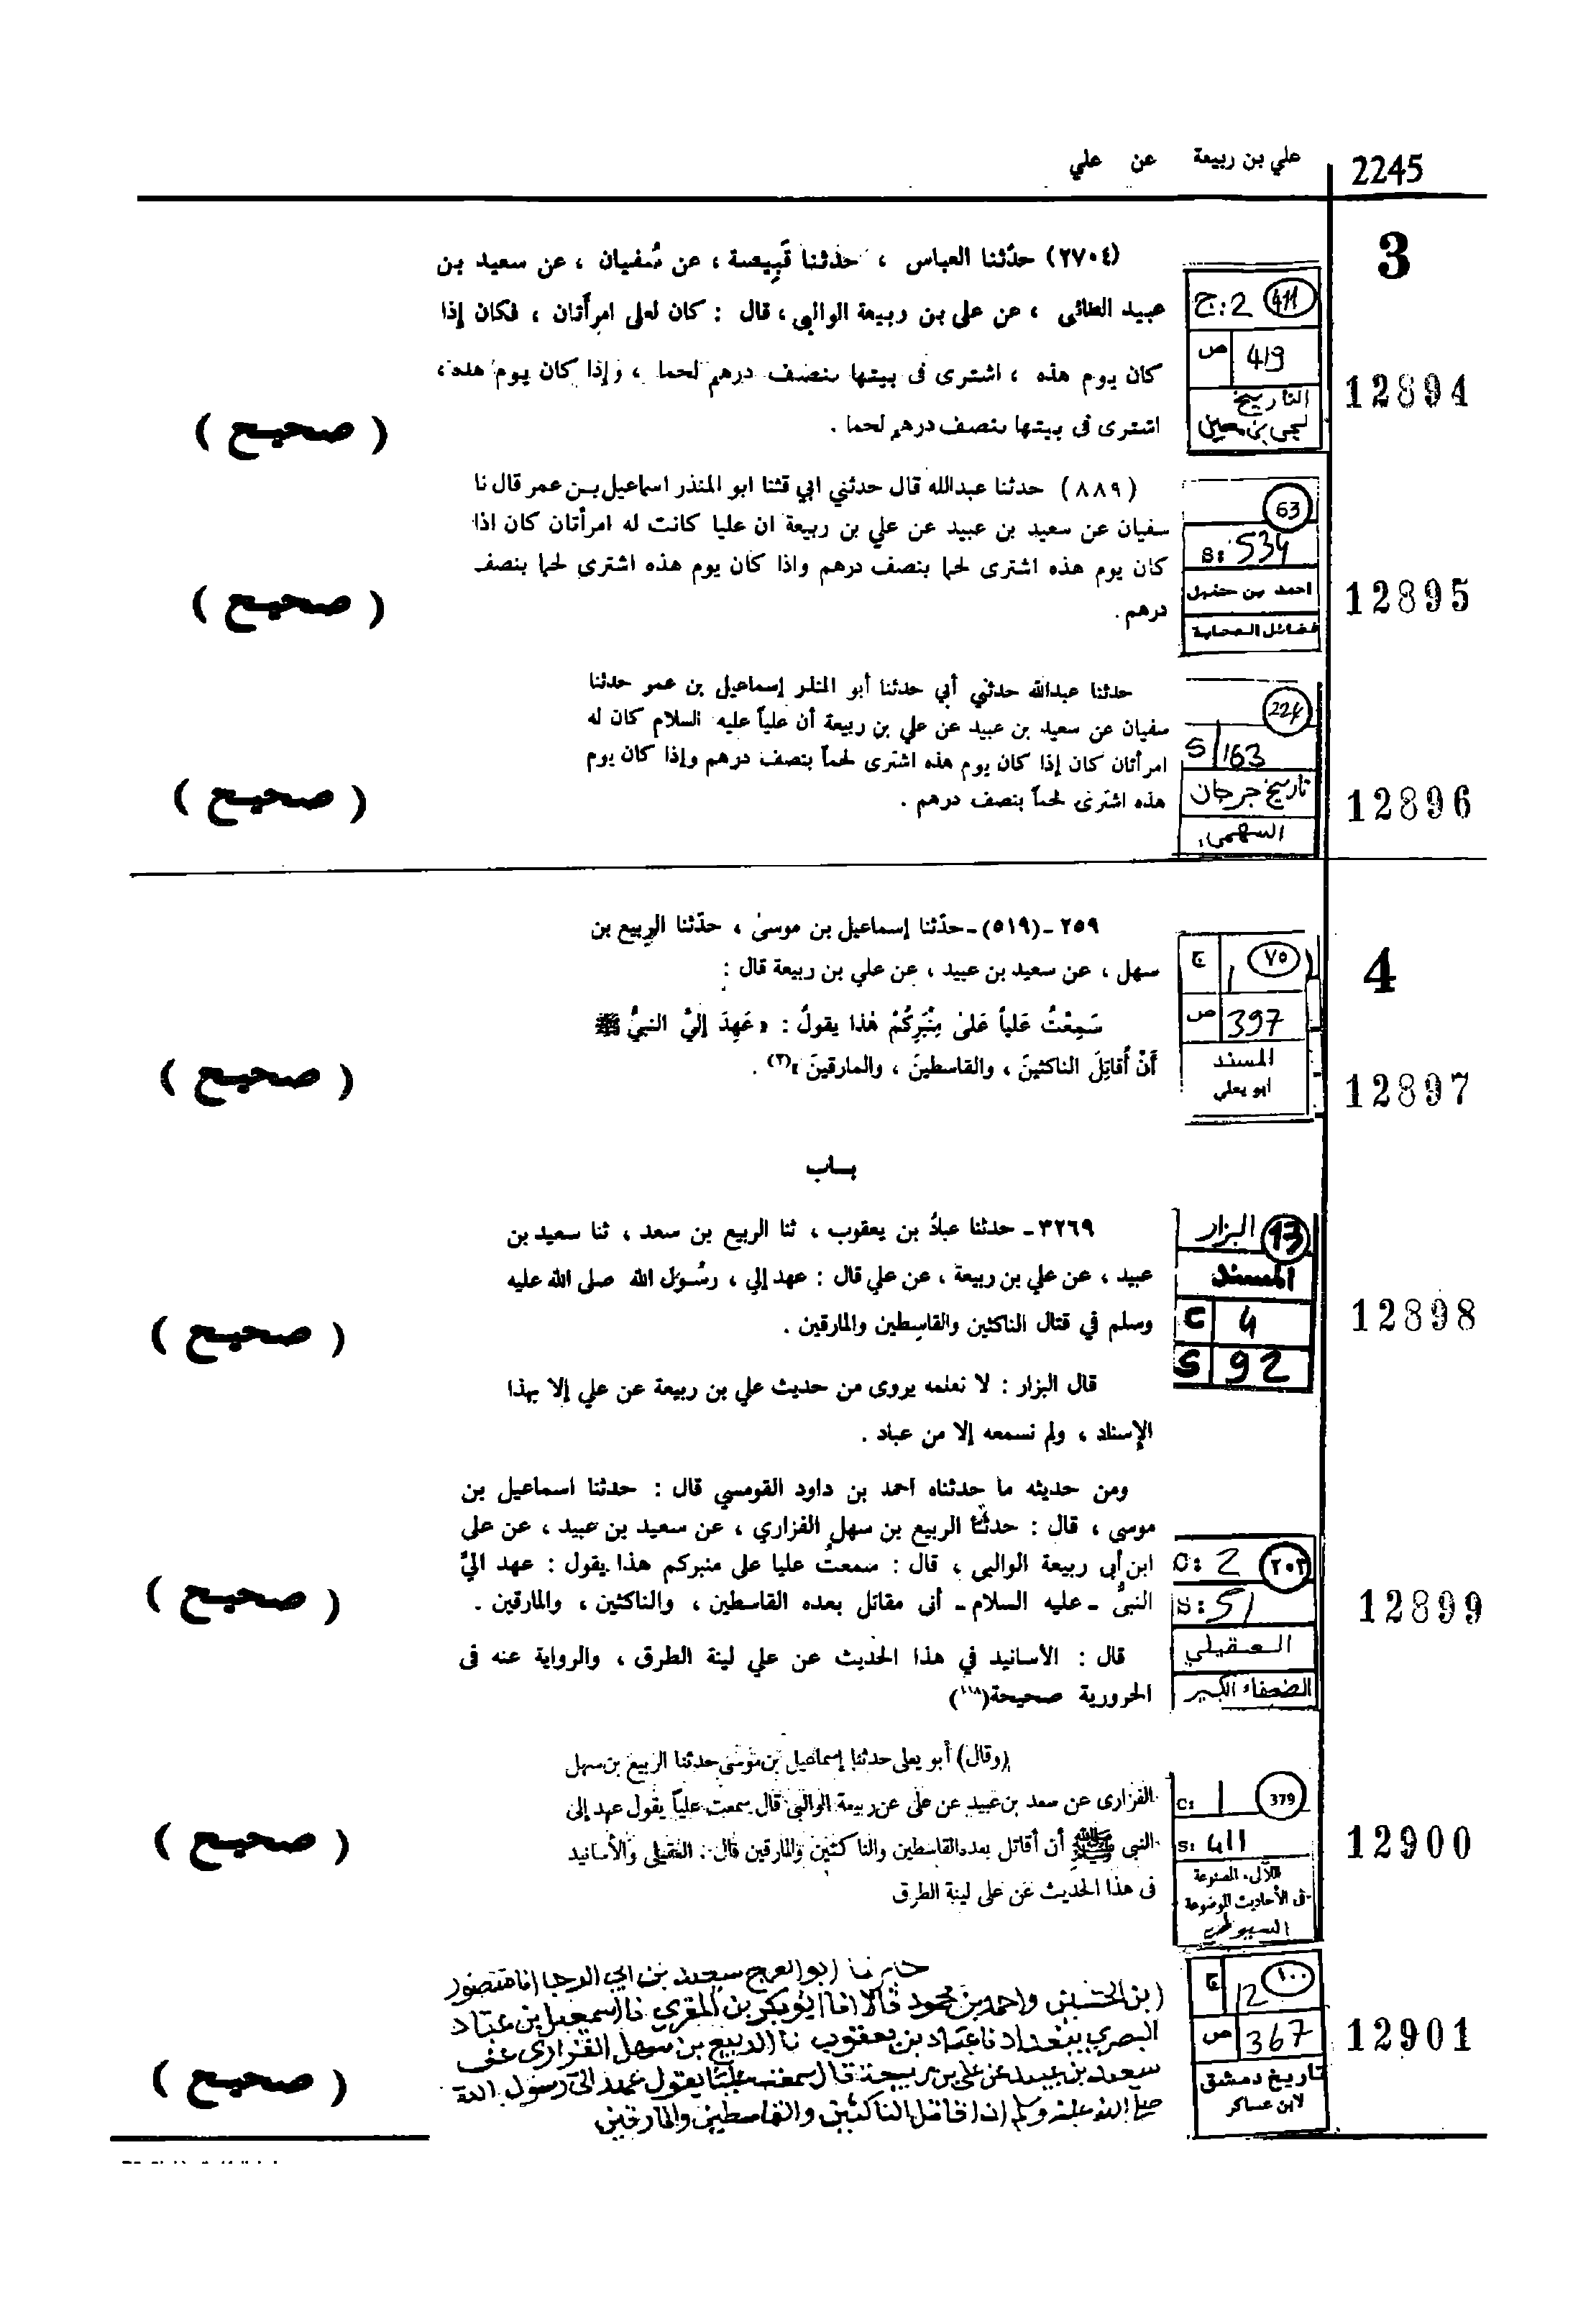 2245
علي بن ربيعة عن علي
3
(٢٧٠٤) حدثنا العباس ، حدثنا قَبِيصة ، عن سُفيان ، عن سعيد بن
عبيد الطائى ، عن على بن ربيعة الوالبى ، قال : كان لعلى امرأتان ، فكان إذا
كان يوم هذه ، اشترى فى بيتها بنصف درهم لحما ، وإذا كان يوم هذه ،
اشترى فى بيتها بنصف درهم لحما .
411
ج: 2
ص 419
التاريخ
ليحيى بن معين
12894
( صحيح )
(٨٨٩) حدثنا عبدالله قال حدثني ابي قثنا ابو المنذر اسماعيل بن عمر قال نا
سفيان عن سعيد بن عبيد عن علي بن ربيعة ان عليا كانت له امرأتان كان اذا
كان يوم هذه اشترى لحما بنصف درهم واذا كان يوم هذه اشترى لحما بنصف
درهم .
63
S: 534
احمد بن حنبل
فضائل الصحابة
12895
( صحيح )
حدثنا عبدالله حدثني أبي حدثنا أبو المنذر إسماعيل بن عمر حدثنا
سفيان عن سعيد بن عبيد عن علي بن ربيعة أن علياً عليه السلام كان له
امرأتان كان إذا كان يوم هذه اشترى لحماً بنصف درهم وإذا كان يوم
هذه اشترى لحماً بنصف درهم .
224
S 163
تاريخ جرجان
السهمي
12896
( صحيح )
4
٢٥٩ - (٥١٩) - حدّثنا إسماعيل بن موسىٰ ، حدّثنا الربيع بن
سهل ، عن سعيد بن عبيد ، عن علي بن ربيعة قال :
سَمِعْتُ عَلياً عَلىٰ مِنْبَرِكُمْ هٰذا يقولُ : «عَهِدَ إليَّ النبيُّ ﷺ
أَنْ أُقاتِلَ الناكثينَ ، والقاسطينَ ، والمارقينَ»(٢) .
٧٥
ج 1
ص 397
المسند
ابو يعلي
12897
( صحيح )
بــاب
٣٢٦٩ - حدثنا عبادُ بن يعقوب ، ثنا الربيع بن سعد ، ثنا سعيد بن
عبيد ، عن علي بن ربيعة ، عن علي قال : عهد إلي ، رسُول الله صلى الله عليه
وسلم في قتال الناكثين والقاسطين والمارقين .
قال البزار : لا نعلمه يروى من حديث علي بن ربيعة عن علي إلا بهذا
الإسناد ، ولم نسمعه إلا من عباد .
13 البزار
المسند
C 4
S 92
12898
( صحيح )
ومن حديثه ما حدثناه احمد بن داود القومسي قال : حدثنا اسماعيل بن
موسى ، قال : حدثنا الربيع بن سهل الفزاري ، عن سعيد بن عبيد ، عن على
ابن أبى ربيعة الوالبى ، قال : سمعتُ عليا على منبركم هذا يقول : عهد اليَّ
النبيُّ - عليه السلام - أنى مقاتل بعده القاسطين ، والناكثين ، والمارقين .
قال : الأسانيد في هذا الحديث عن علي لينة الطرق ، والرواية عنه فى
الحرورية صحيحة(١١٨)
٢٠٢
C: 2
S: 51
العقيلي
الضعفاء الكبير
12899
( صحيح )
(وقال) أبو يعلى حدثنا إسماعيل بن موسى حدثنا الربيع بن سهل
الفزارى عن سعد بن عبيد عن على عن ربيعة الوالبي قال سمعت علياً يقول عهد إلى
النبي ﷺ أن أقاتل بعده القاسطين والناكثين والمارقين قال : العقيلى والأسانيد
فى هذا الحديث عن على لينة الطرق
379
C: 1
S: 411
اللآلىء المصنوعة
فى الأحاديث الموضوعة
السيوطي
12900
( صحيح )
ابو الفرج سعيد بن ابي الرجا انا منصور
ابن الحسين واحمد بن محمود قالا انا ابو بكر بن المقري نا اسمعيل بن عباد
البصري ببغداد نا عباد بن يعقوب نا الربيع بن سهل الفزاري عن
سعيد بن عبيد عن علي بن ربيعة قال سمعت عليا يقول عهد الي رسول الله
صلى الله عليه وسلم ان اقاتل الناكثين والقاسطين والمارقين
١٠٠
ج 12
ص 367
تاريخ دمشق
لابن عساكر
12901
( صحيح )